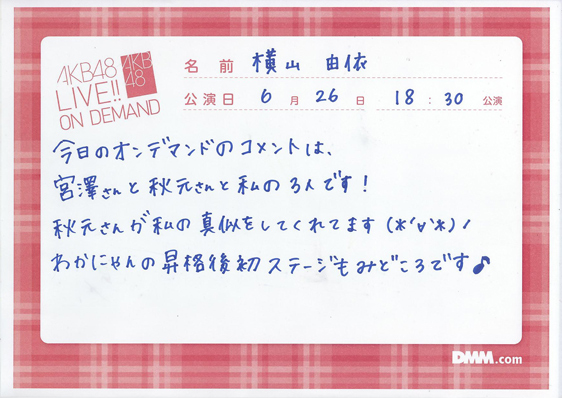 AKB48
LIVE!!
ON DEMAND
AKB
48
名前 横山 由依
公演日 6月26日 18:30公演
今日のオンデマンドのコメントは、
宮澤さんと秋元さんと私の3人です!
秋元さんが私の真似をしてくれてます(*'∀'*)ノ
わかにゃんの昇格後初ステージもみどころです♪
DMM.com